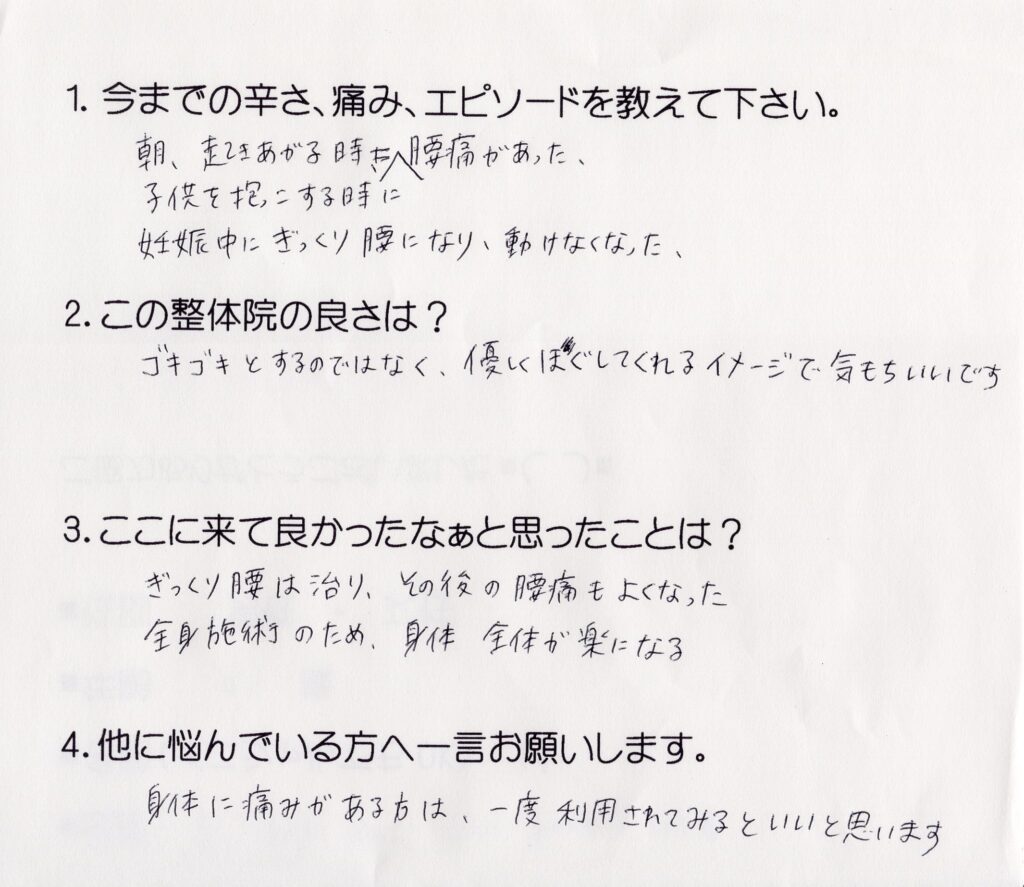 1. 今までの辛さ、痛み、エピソードを教えて下さい。
朝、起きあがる時 腰痛があった、
子供を抱っこする時に
妊娠中にぎっくり腰になり、動けなくなった、
2. この整体院の良さは？
ゴキゴキとするのではなく、優しくほぐしてくれるイメージで気もちいいです
3. ここに来て良かったなぁと思ったことは？
ぎっくり腰は治り、その後の腰痛もよくなった
全身施術のため、身体 全体が楽になる
4. 他に悩んでいる方へ一言お願いします。
身体に痛みがある方は、一度利用されてみるといいと思います